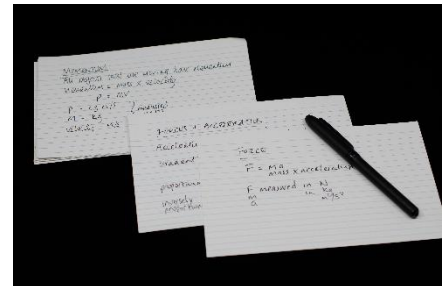 MOMENTUM
All objects that are moving have momentum
Momentum = mass x velocity
P = mv
P = kg m/s
M = kg
velocity = m/s
FORCES + ACCELERATION
Accelerate
proportional
inversely
proportional
FORCE
F = Ma
mass x acceleration
F measured in N
m in kg
a m/s²